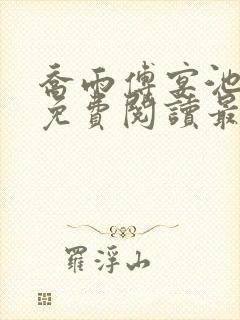 喬雨傅宴池
免費閱讀最
羅浮山